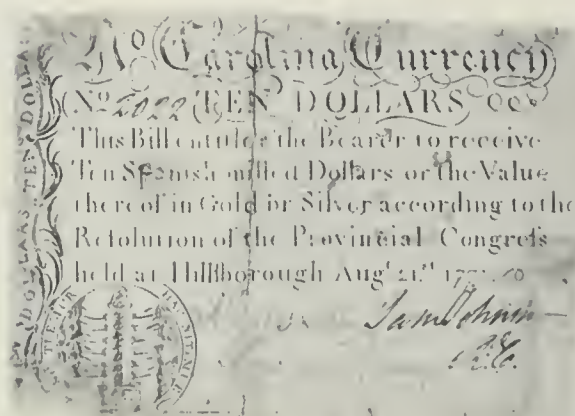 No Carolina Currency
No 2022 (TEN DOLLARS
This Bill entitles the Bearer to receive
Ten Spanish milled Dollars or the Value
thereof in Gold or Silver according to the
Resolution of the Provincial Congress
held at Hillsborough Augt 21st
TEN DOLLARS